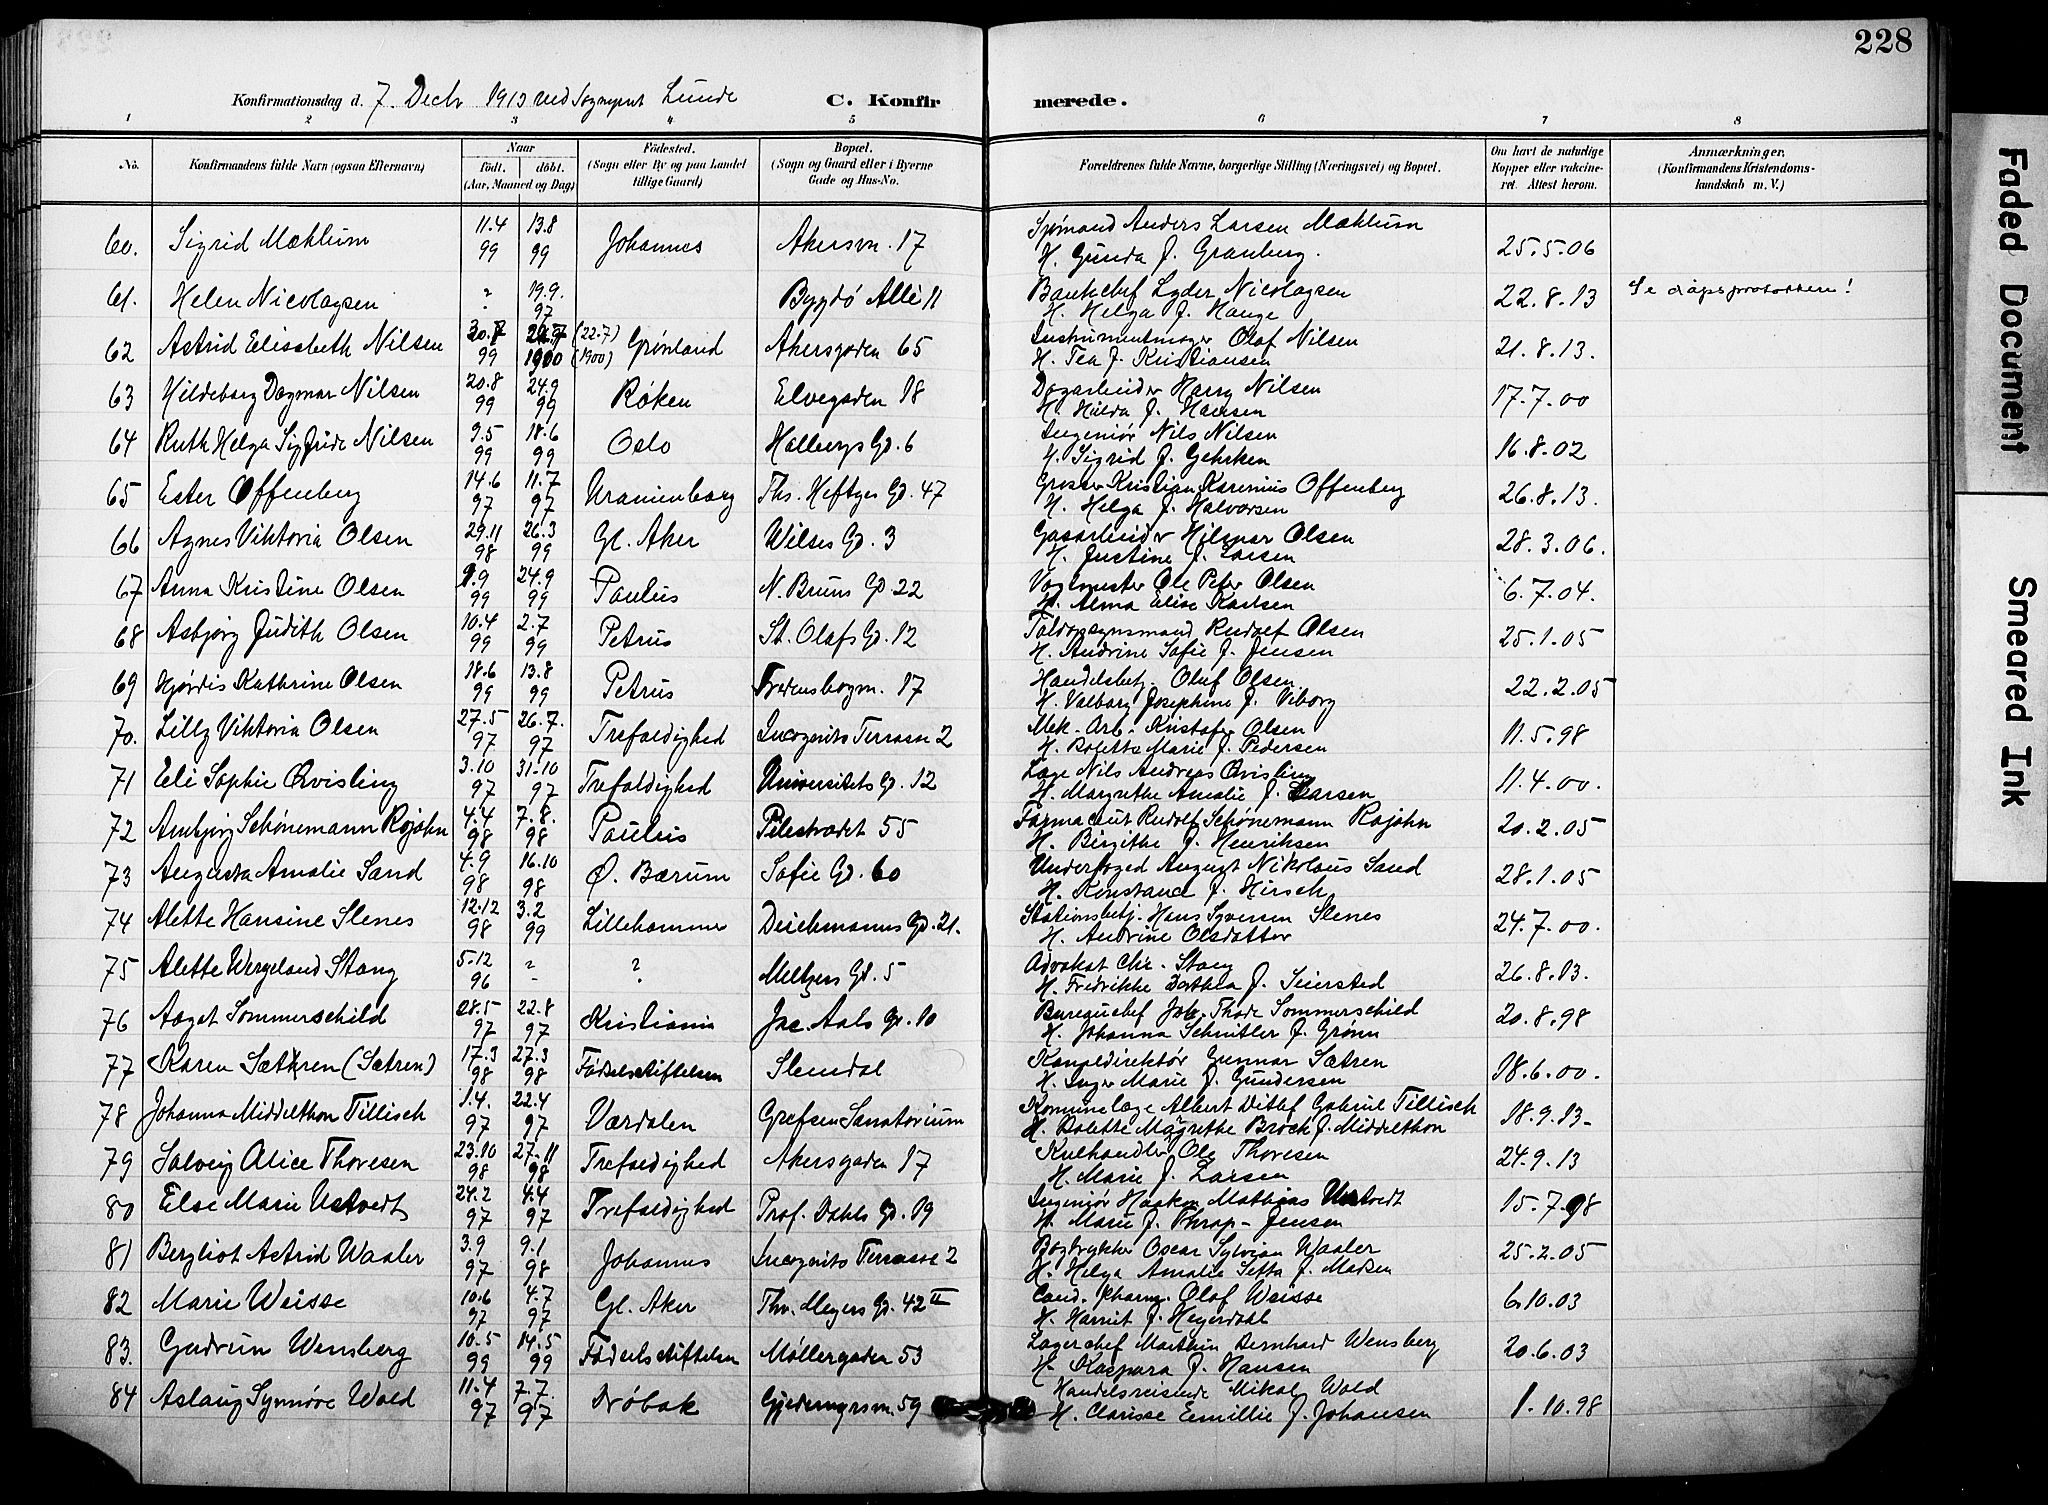 228
Konfirmationsdag d. 7. Decbr 1913 ved Sogneprst Lunde C. Konfirmerede.
1 2 3 4 5 6 7 8
No. Konfirmandens fulde Navn (ogsaa Efternavn) Naar født. døbt. (Aar, Maaned og Dag) Fødested. (Sogn eller By og paa Landet tillige Gaard) Bopæl. (Sogn og Gaard eller i Byerne Gade og Hus-No. Forældrenes fulde Navne, borgerlige Stilling (Næringsvei) og Bopæl. Om havt de naturlige Kopper eller vakcineret. Attest herom. Anmærkninger. (Konfirmandens Kristendomskundskab m. V.)
60. Sigrid Mæhlum 11.4 99 13.8 99 Johannes Akersvn. 17 Sjømand Anders Larsen Mæhlum H. Gunda f. Granberg. 25.5.06
61. Helen Nicolaysen 19.9. 97 Bygdø Allé 11 Bankchef Lyder Nicolaysen H. Helga f. Hauge 22.8.13 Se dåpsprotokollen!
62 Astrid Elisabeth Nilsen 30.7 99 22.7 1900 (22.7) (1900) Grønland Akersgaden 65 Instrumentmager Olaf Nilsen H. Tea f. Kristiansen 21.8.13.
63 Hildeborg Dagmar Nilsen 20.8 99 24.9 99 Røken Elvegaden 18 Dagarbeider Harry Nilsen H. Hilda f. Hansen 17.7.00
64 Ruth Helga Sigfride Nilsen 9.5 99 18.6 99 Oslo Holbergs Gd. 6 Ingeniør Nils Nilsen H. Sigrid f. Gehrken 16.8.02
65 Ester Offenberg 14.6 97 11.7 97 Uranienborg Ths. Heftyes Gd. 47 Grosser Kristian Karenius Offenberg H. Helga f. Halvorsen 26.8.13.
66 Agnes Viktoria Olsen 29.11 98 26.3 99 Gl. Aker Wilses Gd. 3 Gasarbeider Hilmar Olsen H. Justine f. Larsen 28.3.06.
67 Anna Kristine Olsen 9.9 99 24.9 99 Paulus N. Bruns Gd 22 Vognmester Ole Peter Olsen H. Alma Elise Karlsen 6.7.04.
68 Asbjørg Judith Olsen 10.4 99 2.7 99 Petrus St. Olafs Gd. 12 Toldopsynsmand Rudolf Olsen H. Andrine Sofie f. Jensen 25.1.05
69 Hjørdis Kathrine Olsen 18.6 99 13.8 99 Petrus Fredensborgvn. 17 Handelsbetj. Oluf Olsen H. Valborg Josephine f. Viborg 22.2.05
70. Lilly Viktoria Olsen 27.5 97 26.7. 97 Trefoldighed Incognito Terrasse 2 Mek. Arb. Kristofer Olsen H. Bolette Marie f. Pedersen 11.5.98
71 Eli Sophie Qvisling 3.10 97 31.10 97 Trefoldighed Universitets Gd. 12 Læge Nils Andreas Qvisling H. Margrethe Amalie f. Larsen 11.4.00.
72 Asbjørg Schønemann Rojahn 4.4 98 7.8. 98 Paulus Pilestrædet 55 Farmaceut Rudolf Schønemann Rojahn H. Birgithe f. Henriksen 20.2.05
73 Augusta Amalie Sand 4.9 98 16.10 98 Ø. Bærum Sofie Gd. 60 Underfoged August Nikolaus Sand H. Konstance f. Hirsch 28.1.05
74 Alette Hansine Slenes 12.12 98 3.2 99 Lillehammer Deichmanns Gd. 21. Stationsbetj. Hans Syversen Slenes H. Andrine Olsdatter 24.7.00.
75 Alette Wergeland Stang 5.12 96 ? - ? Meltzers Gd. 5 Advokat Chr. Stang H. Fredrikke Dorthea f. Seiersted 26.8.13.
76 Aagot Sommerschild 28.5 97 22.8 97 Kristiania Jac. Aals Gd. 10 Bureauchef Jak. Thode Sommerschild H. Johanna Schnitler f. Grønn 20.8.98
77 Karen Sæthren (Sætren) 17.3 98 27.3 98 Fødselsstiftelsen Slemdal Kanaldirektør Gunnar Sætren H. Inger Marie f. Gundersen 18.6.00.
78 Johanna Middelthon Tillisch 1.4. 97 22.4 97 Værdalen Grefsen Sanatorium Kommunelæge Albert Ditlef Gabriel Tillisch H. Bolette Magrethe Broch f. Middelthon 18.9.13-
79 Solveig Alice Thoresen 23.10 98 27.11 98 Trefoldighed Akersgaden 17 Kulhandler Ole Thoresen H. Marie f. Larsen 24.9.13
80 Else Marie Ustvedt 24.2 97 4.4 97 Trefoldighed Prof. Dahls Gd. 19 Ingeniør Haakon Mathias Ustvedt H. Marie f. Thrap-Jensen 15.7.98
81 Bergliot Astrid Waaler 3.9 97 9.1 98 Johannes Incognito Terrasse 2 Bogtrykker Oscar Sylvian Waaler H. Helga Amalie Setta f. Madsen 25.2.05
82 Marie Weisse 10.6 97 4.7 97 Gl. Aker Thv. Meyers Gd. 42 II Cand. Pharm. Olof Weisse H. Harriet f. Heyerdahl 6.10.03
83. Gudrun Wensberg 10.5 99 14.5 99 Fødselsstiftelsen Møllergaden 53 Lagerchef Marthin Bernhard Wensberg H. Kaspara f. Hansen 20.6.03
84 Aslaug Synnøve Wold 11.4 97 7.7. 97 Drøbak Gjedemyrsvn. 59 Handelsreisende Mikal Wold H. Clarisse Emillie f. Johansen 1.10.98
Faded Document
Smeared Ink